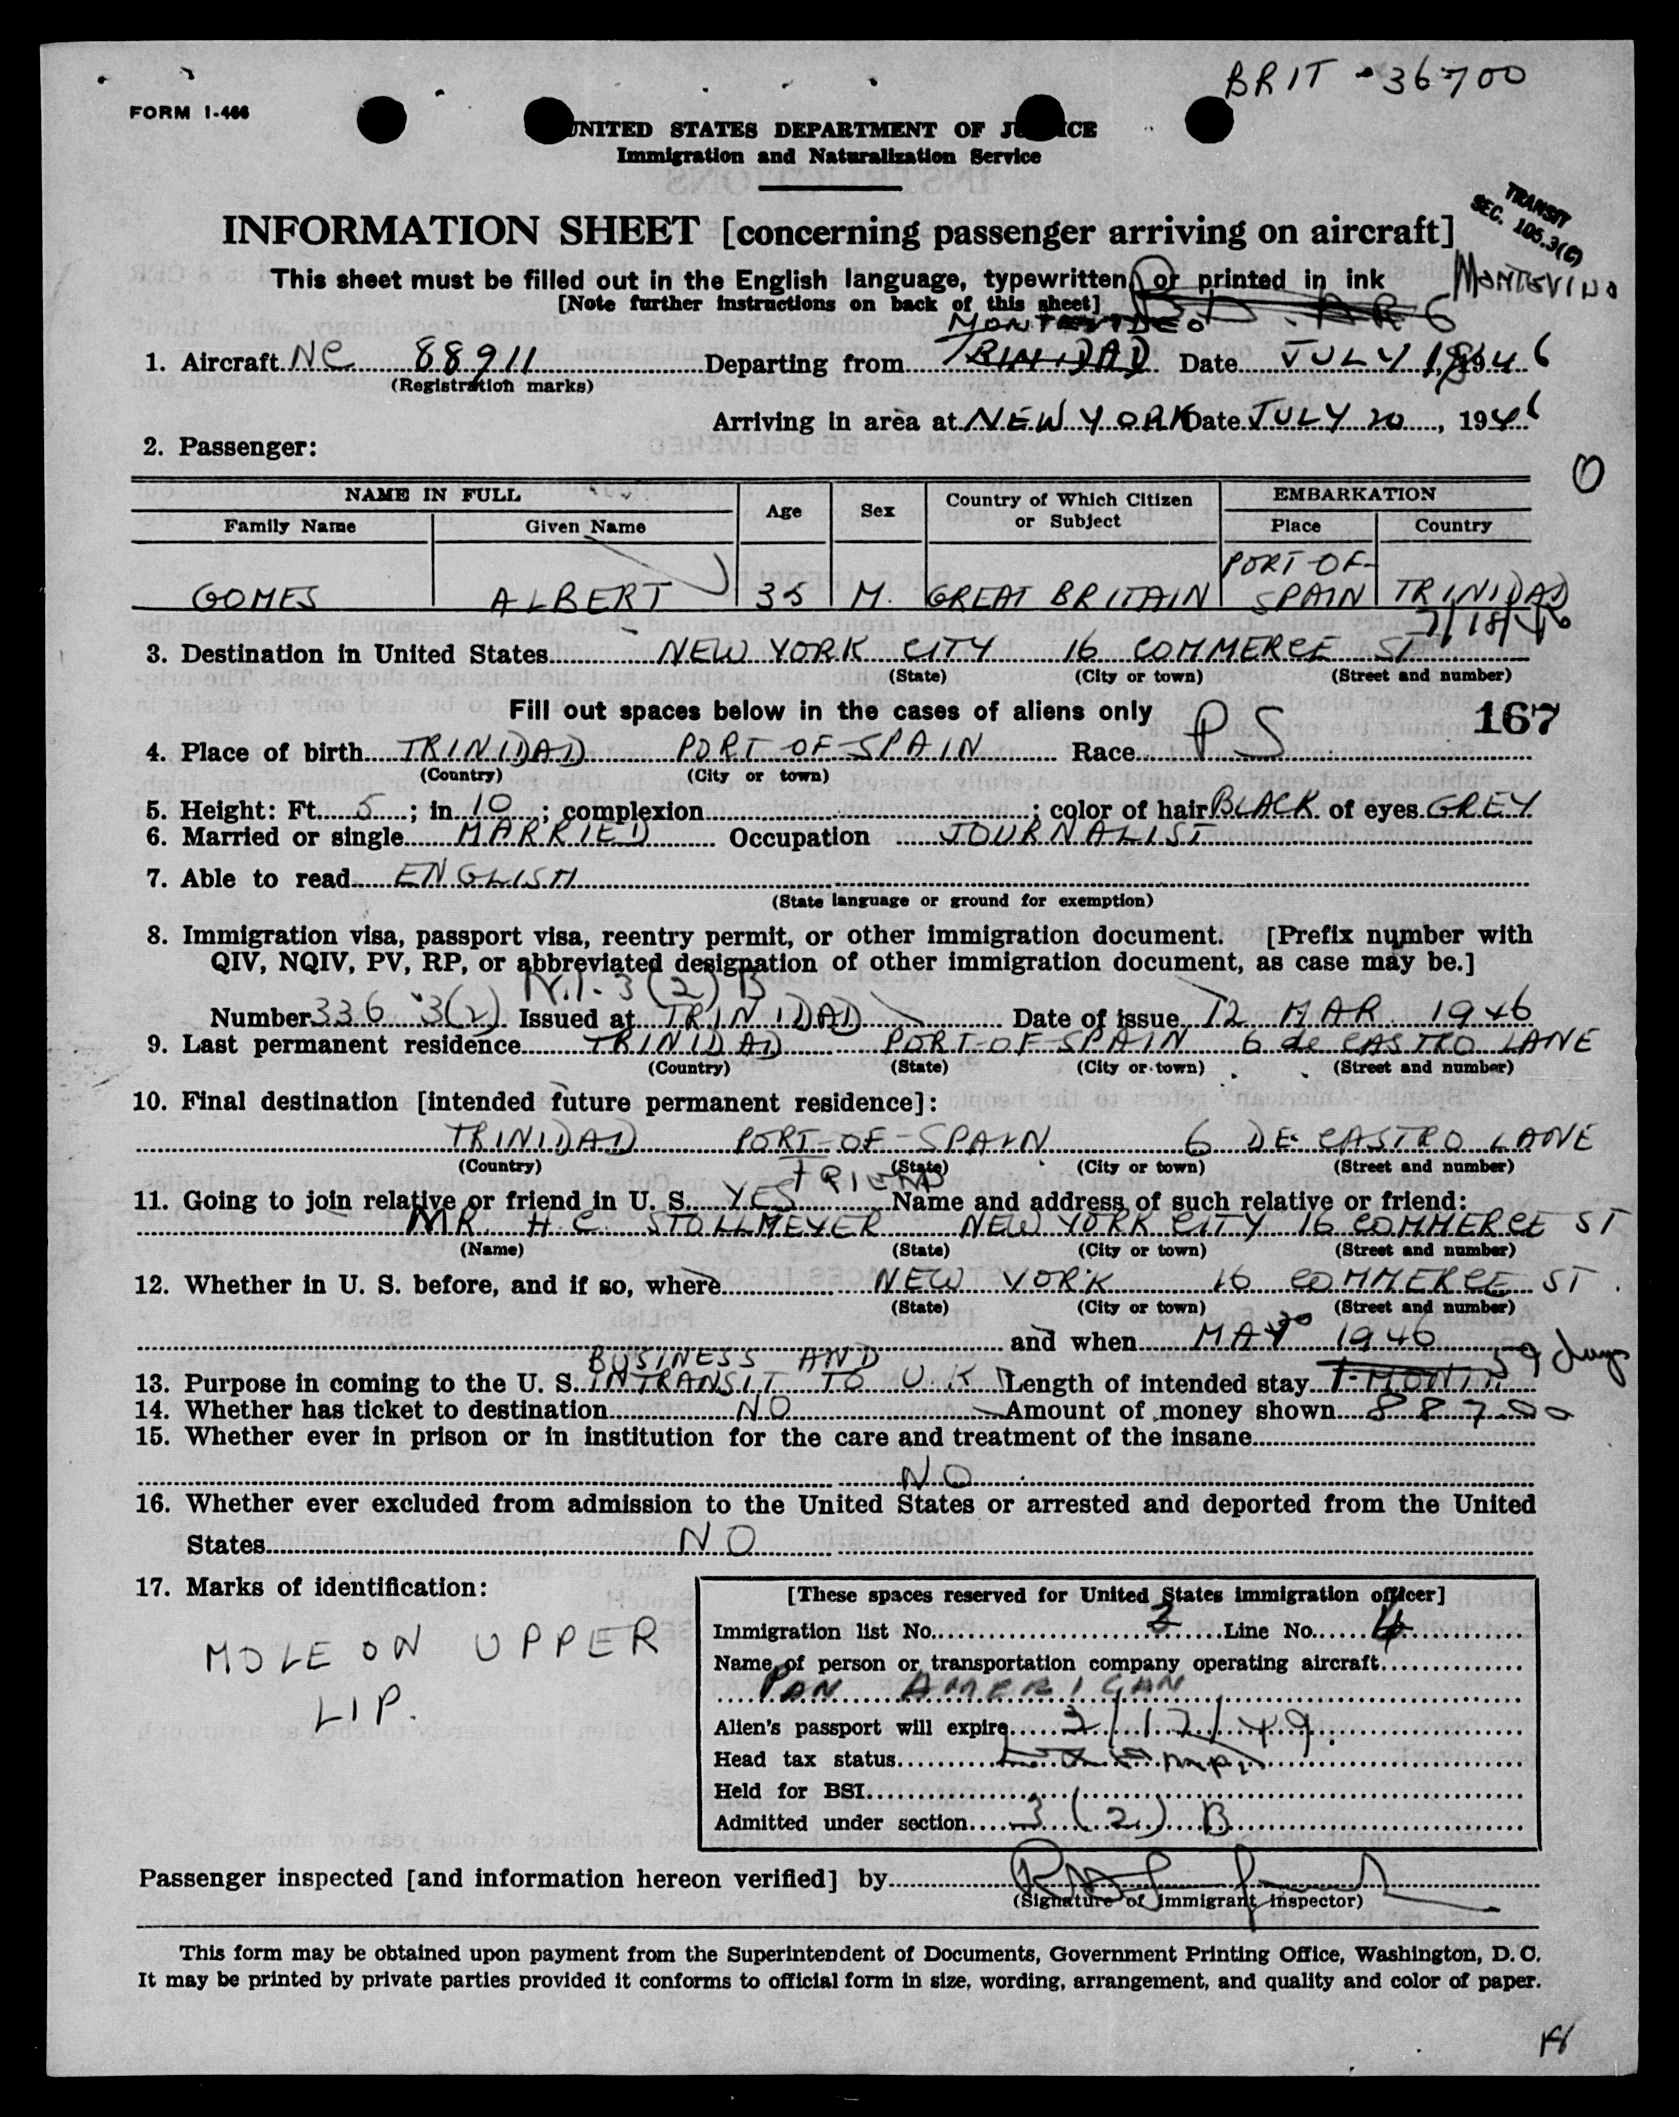 BRIT - 36700
FORM I-466
UNITED STATES DEPARTMENT OF JUSTICE
Immigration and Naturalization Service
TRANSIT
SEC. 105.3(C)
INFORMATION SHEET [concerning passenger arriving on aircraft]
This sheet must be filled out in the English language, typewritten or printed in ink
[Note further instructions on back of this sheet]
MONTEVIDEO
1. Aircraft NC 88911 Departing from TRINIDAD Date JULY 18, 1946
(Registration marks)
Arriving in area at NEW YORK Date JULY 20, 1946
2. Passenger:
O
NAME IN FULL Age Sex Country of Which Citizen or Subject EMBARKATION
Family Name Given Name Place Country
GOMES ALBERT 35 M. GREAT BRITAIN PORT-OF-SPAIN TRINIDAD
7/18/46
3. Destination in United States NEW YORK CITY 16 COMMERCE ST
(State) (City or town) (Street and number)
Fill out spaces below in the cases of aliens only
167
4. Place of birth TRINIDAD PORT-OF-SPAIN Race PS
(Country) (City or town)
5. Height: Ft. 5; in. 10; complexion ; color of hair BLACK of eyes GREY
6. Married or single MARRIED Occupation JOURNALIST
7. Able to read ENGLISH
(State language or ground for exemption)
8. Immigration visa, passport visa, reentry permit, or other immigration document. [Prefix number with
QIV, NQIV, PV, RP, or abbreviated designation of other immigration document, as case may be.]
N.I. 3(2)B
Number 336 3(2) Issued at TRINIDAD Date of issue 12 MAR 1946
9. Last permanent residence TRINIDAD PORT-OF-SPAIN 6 de CASTRO LANE
(Country) (State) (City or town) (Street and number)
10. Final destination [intended future permanent residence]:
TRINIDAD PORT-OF-SPAIN 6 DE CASTRO LANE
(Country) (State) (City or town) (Street and number)
FRIEND
11. Going to join relative or friend in U. S. YES Name and address of such relative or friend:
MR. H. C. STOLLMEYER NEW YORK CITY 16 COMMERCE ST
(Name) (State) (City or town) (Street and number)
12. Whether in U. S. before, and if so, where NEW YORK 16 COMMERCE ST.
(State) (City or town) (Street and number)
and when MAY 30 1946
BUSINESS AND
59 days
13. Purpose in coming to the U. S. INTRANSIT TO U.K Length of intended stay 1-MONTH
14. Whether has ticket to destination NO Amount of money shown 887.00
15. Whether ever in prison or in institution for the care and treatment of the insane
NO
16. Whether ever excluded from admission to the United States or arrested and deported from the United
States NO
17. Marks of identification:
MOLE ON UPPER
LIP.
[These spaces reserved for United States immigration officer]
Immigration list No. 3 Line No. 4
Name of person or transportation company operating aircraft
PAN AMERICAN
Alien's passport will expire 2/12/49.
Head tax status
Held for BSI
Admitted under section 3(2)B
Passenger inspected [and information hereon verified] by
(Signature of immigrant inspector)
This form may be obtained upon payment from the Superintendent of Documents, Government Printing Office, Washington, D. C.
It may be printed by private parties provided it conforms to official form in size, wording, arrangement, and quality and color of paper.